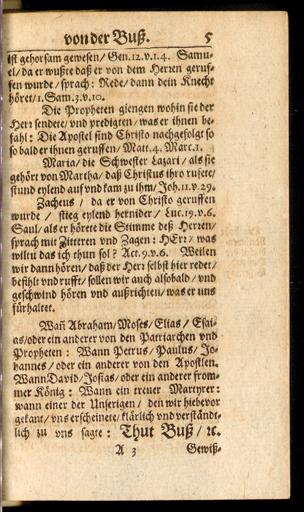 von der Buß. 5
ist gehorsam gewesen/Gen.12.v.1.4. Samu-
el/da er wußte daß er von dem Herren geruf-
fen wurde/sprach: Rede/dann dein Knecht
höret/1.Sam.3.v.10.
Die Propheten giengen wohin sie der
Herr sendete/vnd predigten/was er ihnen be-
fahl: Die Apostel sind Christo nachgefolgt so
so bald er ihnen geruffen/Matt.4. Marc.1.
Maria/die Schwester Lazari/als sie
gehört von Martha/daß Christus ihro ruffete/
stund eylend auf vnd kam zu ihm/Joh.11.v.29.
Zacheus/da er von Christo geruffen
wurde/stieg eylend hernider/Luc.19.v.6.
Saul/als er hörete die Stimme deß Herren/
sprach mit Zitteren vnd Zagen: HErr/was
wiltu das ich thun sol? Act.9.v.6. Weilen
wir dann hören/daß der Herr selbst hier redet/
befihlt vnd rufft/sollen wir auch alsobald/vnd
geschwind hören vnd außrichten/was er uns
fürhaltet.
Wañ Abraham/Moses/Elias/Esai-
as/oder ein anderer von den Patriarchen vnd
Propheten: Wann Petrus/Paulus/Jo-
hannes/oder ein anderer von den Apostlen.
Wann David/Josias/oder ein anderer from-
mer König: Wann ein treuer Martyrer:
wann einer der Unserigen/den wir hiebevor
gekant/vns erscheinete/klärlich vnd verständt-
lich zu vns sagte: Thut Buß/ꝛc.
A 3 Gewiß-